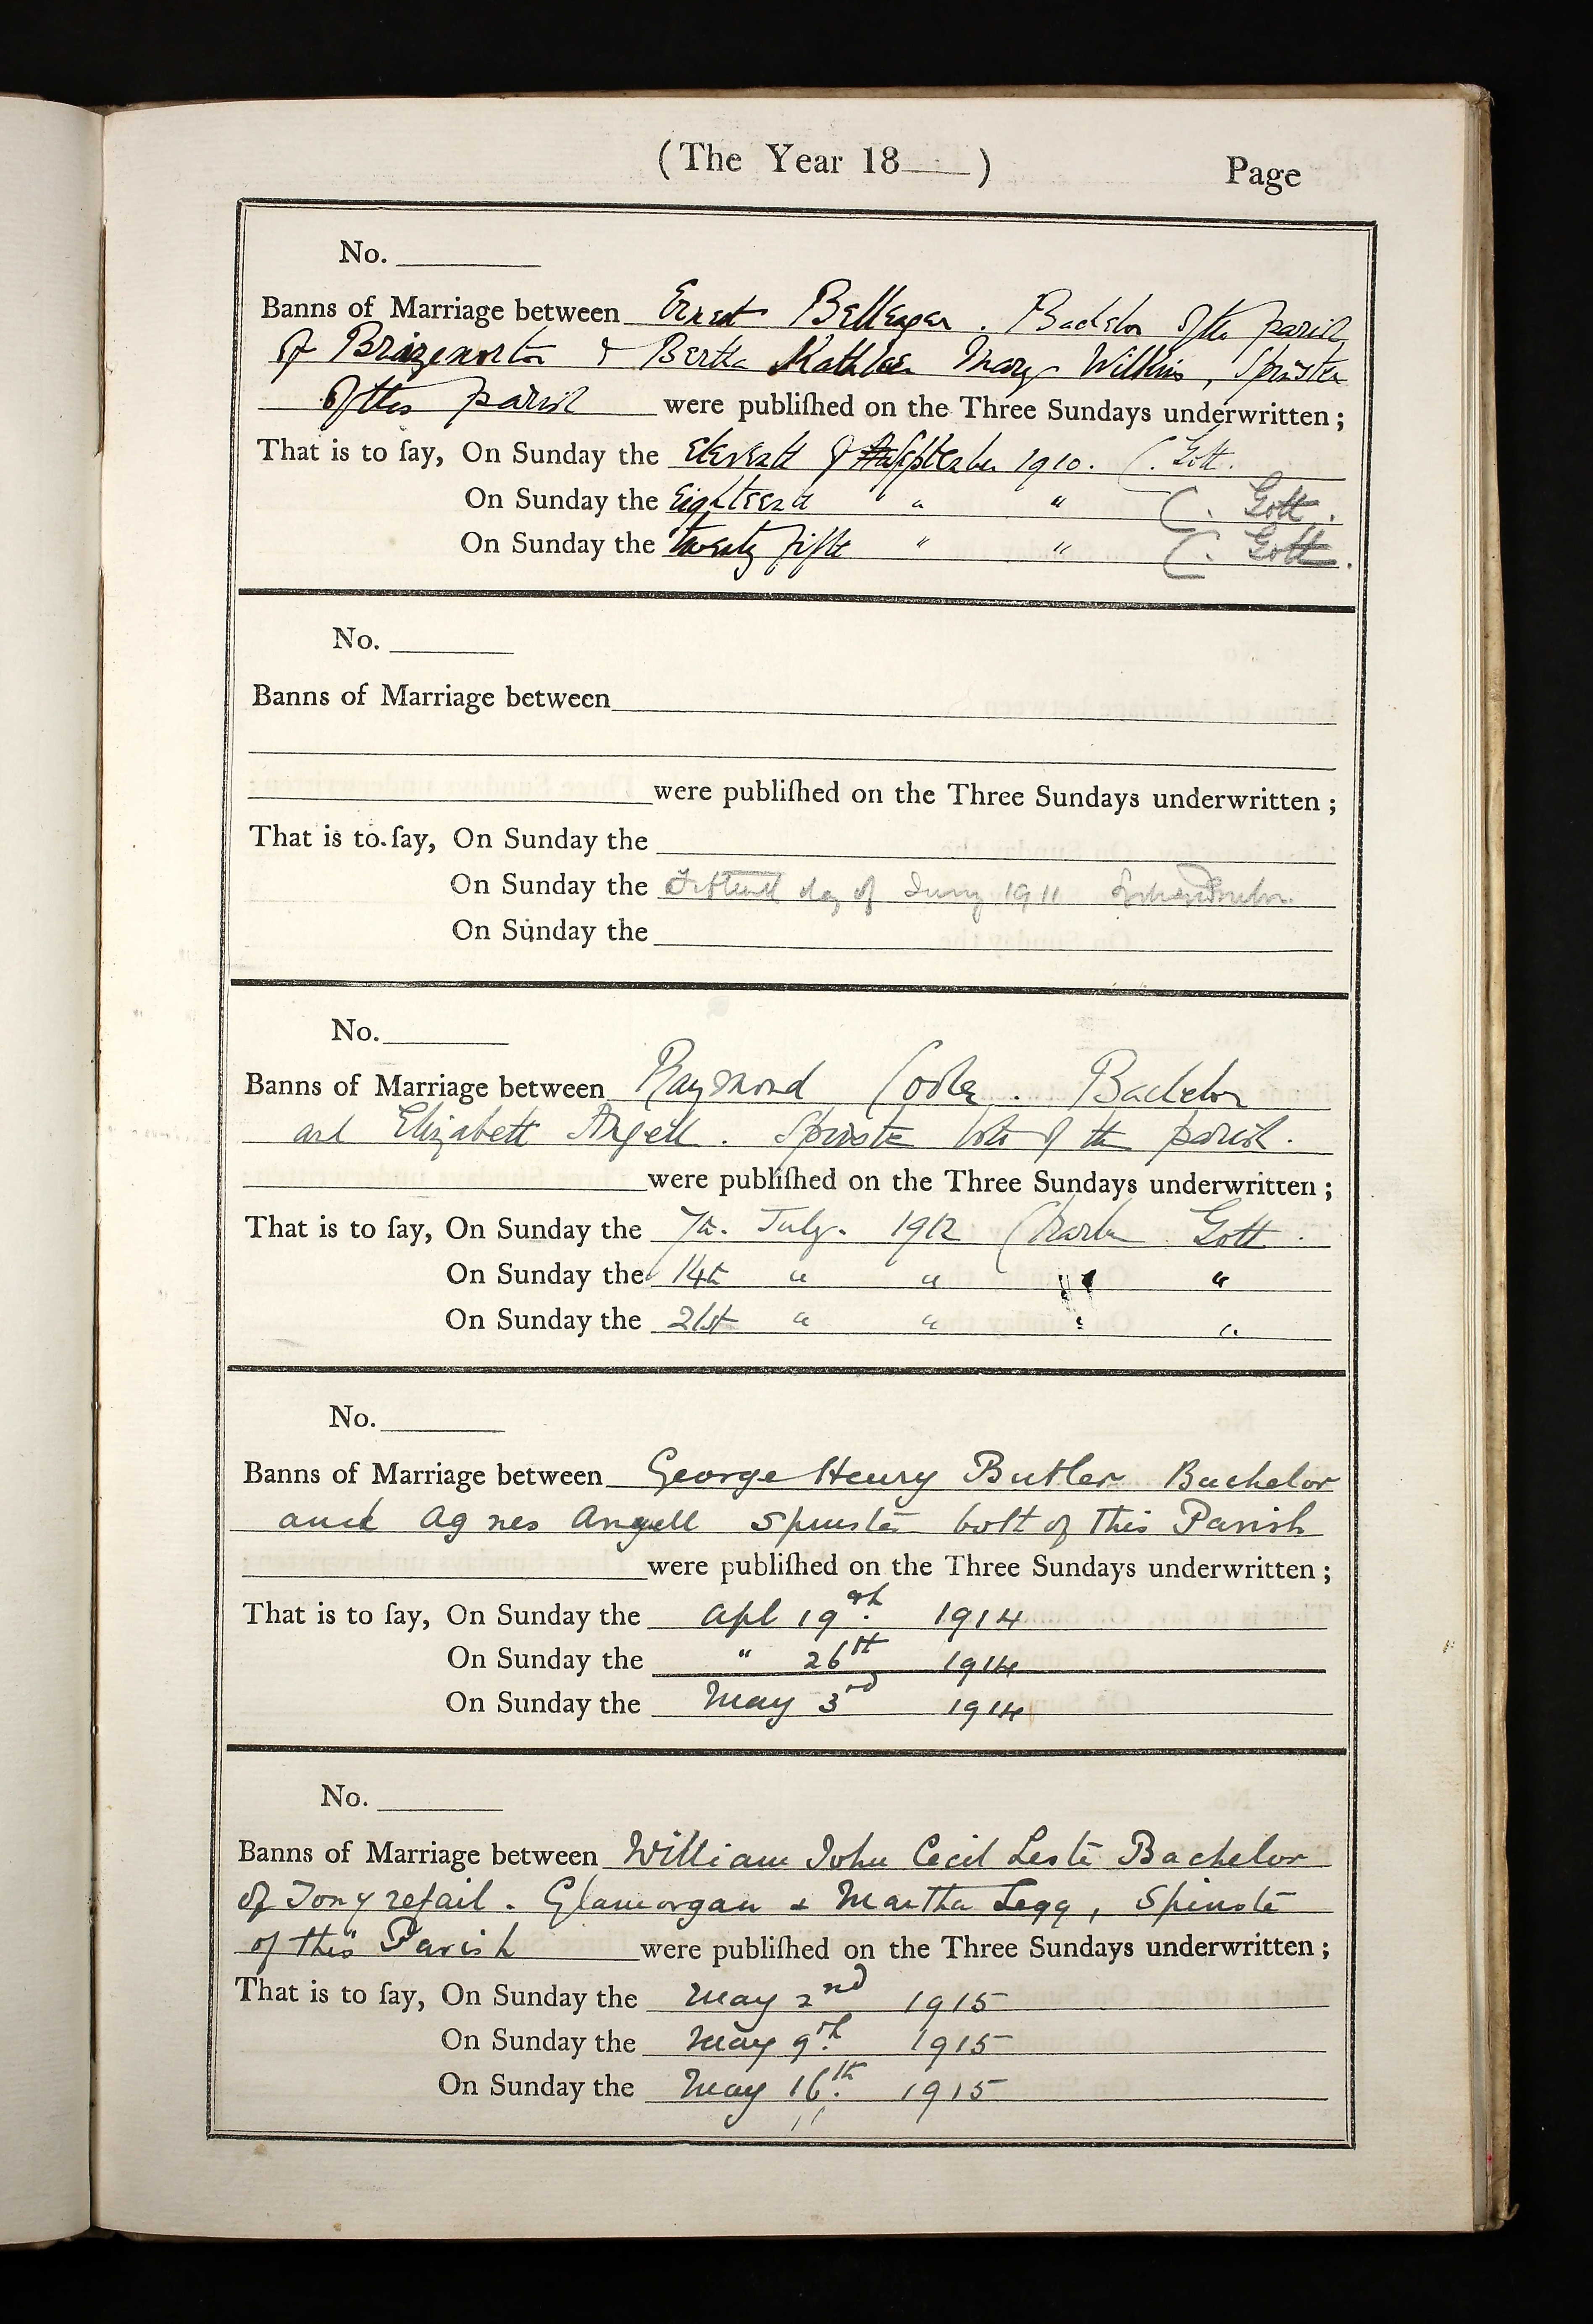 (The Year 18 ) Page
No.
Banns of Marriage between Ernest Bellenger. Bachelor of the parish
of Brizenorton & Bertha Kathleen Mary Wilkins, Spinster
of this parish were publiſhed on the Three Sundays underwritten;
That is to ſay, On Sunday the Eleventh of September 1910. C. Gott.
On Sunday the Eighteenth " " C. Gott.
On Sunday the twenty fifth " " C. Gott.
No.
Banns of Marriage between
were publiſhed on the Three Sundays underwritten;
That is to ſay, On Sunday the
On Sunday the day of 1911
On Sunday the
No.
Banns of Marriage between Raymond . Bachelor
and Elizabeth Angell. Spinster both of the parish.
were publiſhed on the Three Sundays underwritten;
That is to ſay, On Sunday the 7th. July. 1912 Charles Gott.
On Sunday the 14th " " " "
On Sunday the 21st " " " "
No.
Banns of Marriage between George Henry Butler Bachelor
and Agnes Angell Spinster both of this Parish
were publiſhed on the Three Sundays underwritten;
That is to ſay, On Sunday the Apl 19th. 1914
On Sunday the " 26th 1914
On Sunday the May 3rd 1914
No.
Banns of Marriage between William John Cecil Leste Bachelor
of Tonyrefail. Glamorgan & Martha Legg, Spinster
of this Parish were publiſhed on the Three Sundays underwritten;
That is to ſay, On Sunday the May 2nd 1915
On Sunday the May 9th. 1915
On Sunday the May 16th. 1915